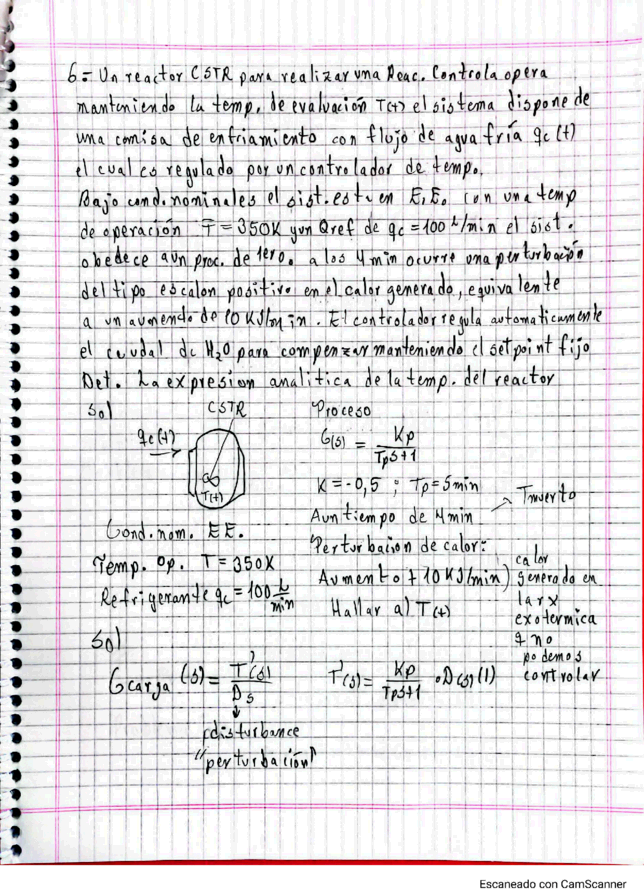 6= Un reactor CSTR para realizar una Reac. Controla opera
manteniendo la temp. de evaluación T(t) el sistema dispone de
una camisa de enfriamiento con flujo de agua fría qc(t)
el cual es regulado por un controlador de temp.
Bajo cond. nominales el sist. est. en E.E. con una temp
de operación T̄ = 350K y un Qref de qc = 100 L/min el sist.
obedece a un proc. de 1ero. a los 4 min ocurre una perturbación
del tipo escalon positivo en el calor generado, equivalente
a un aumento de 10 KJ/min. El controlador regula automaticamente
el caudal de H2O para compenzar manteniendo el setpoint fijo
Det. La expresion analitica de la temp. del reactor
Sol
CSTR
qc(t)
T(t)
Cond. nom. EE.
Temp. Op. T = 350K
Refrigerante qc = 100 L/min
Proceso
G(s) = Kp / Tps+1
K = -0,5 ; Tp = 5 min
A un tiempo de 4 min
Tmuerto
Perturbacion de calor:
Aumento + 10 KJ/min)
Hallar al T(t)
calor
generado en
la rx
exotermica
q no
podemos
controlar
Sol
Gcarga (s) = T'(s) / Ds
T'(s) = Kp / Tps+1 • D(s) (1)
disturbance
"perturbación"
Escaneado con CamScanner